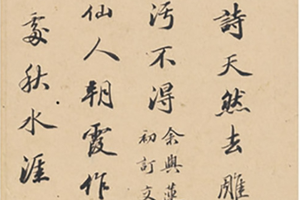 詩天然去雕
汚不得余與蓮
初訂文
仙人朝霞作
處秋水涯